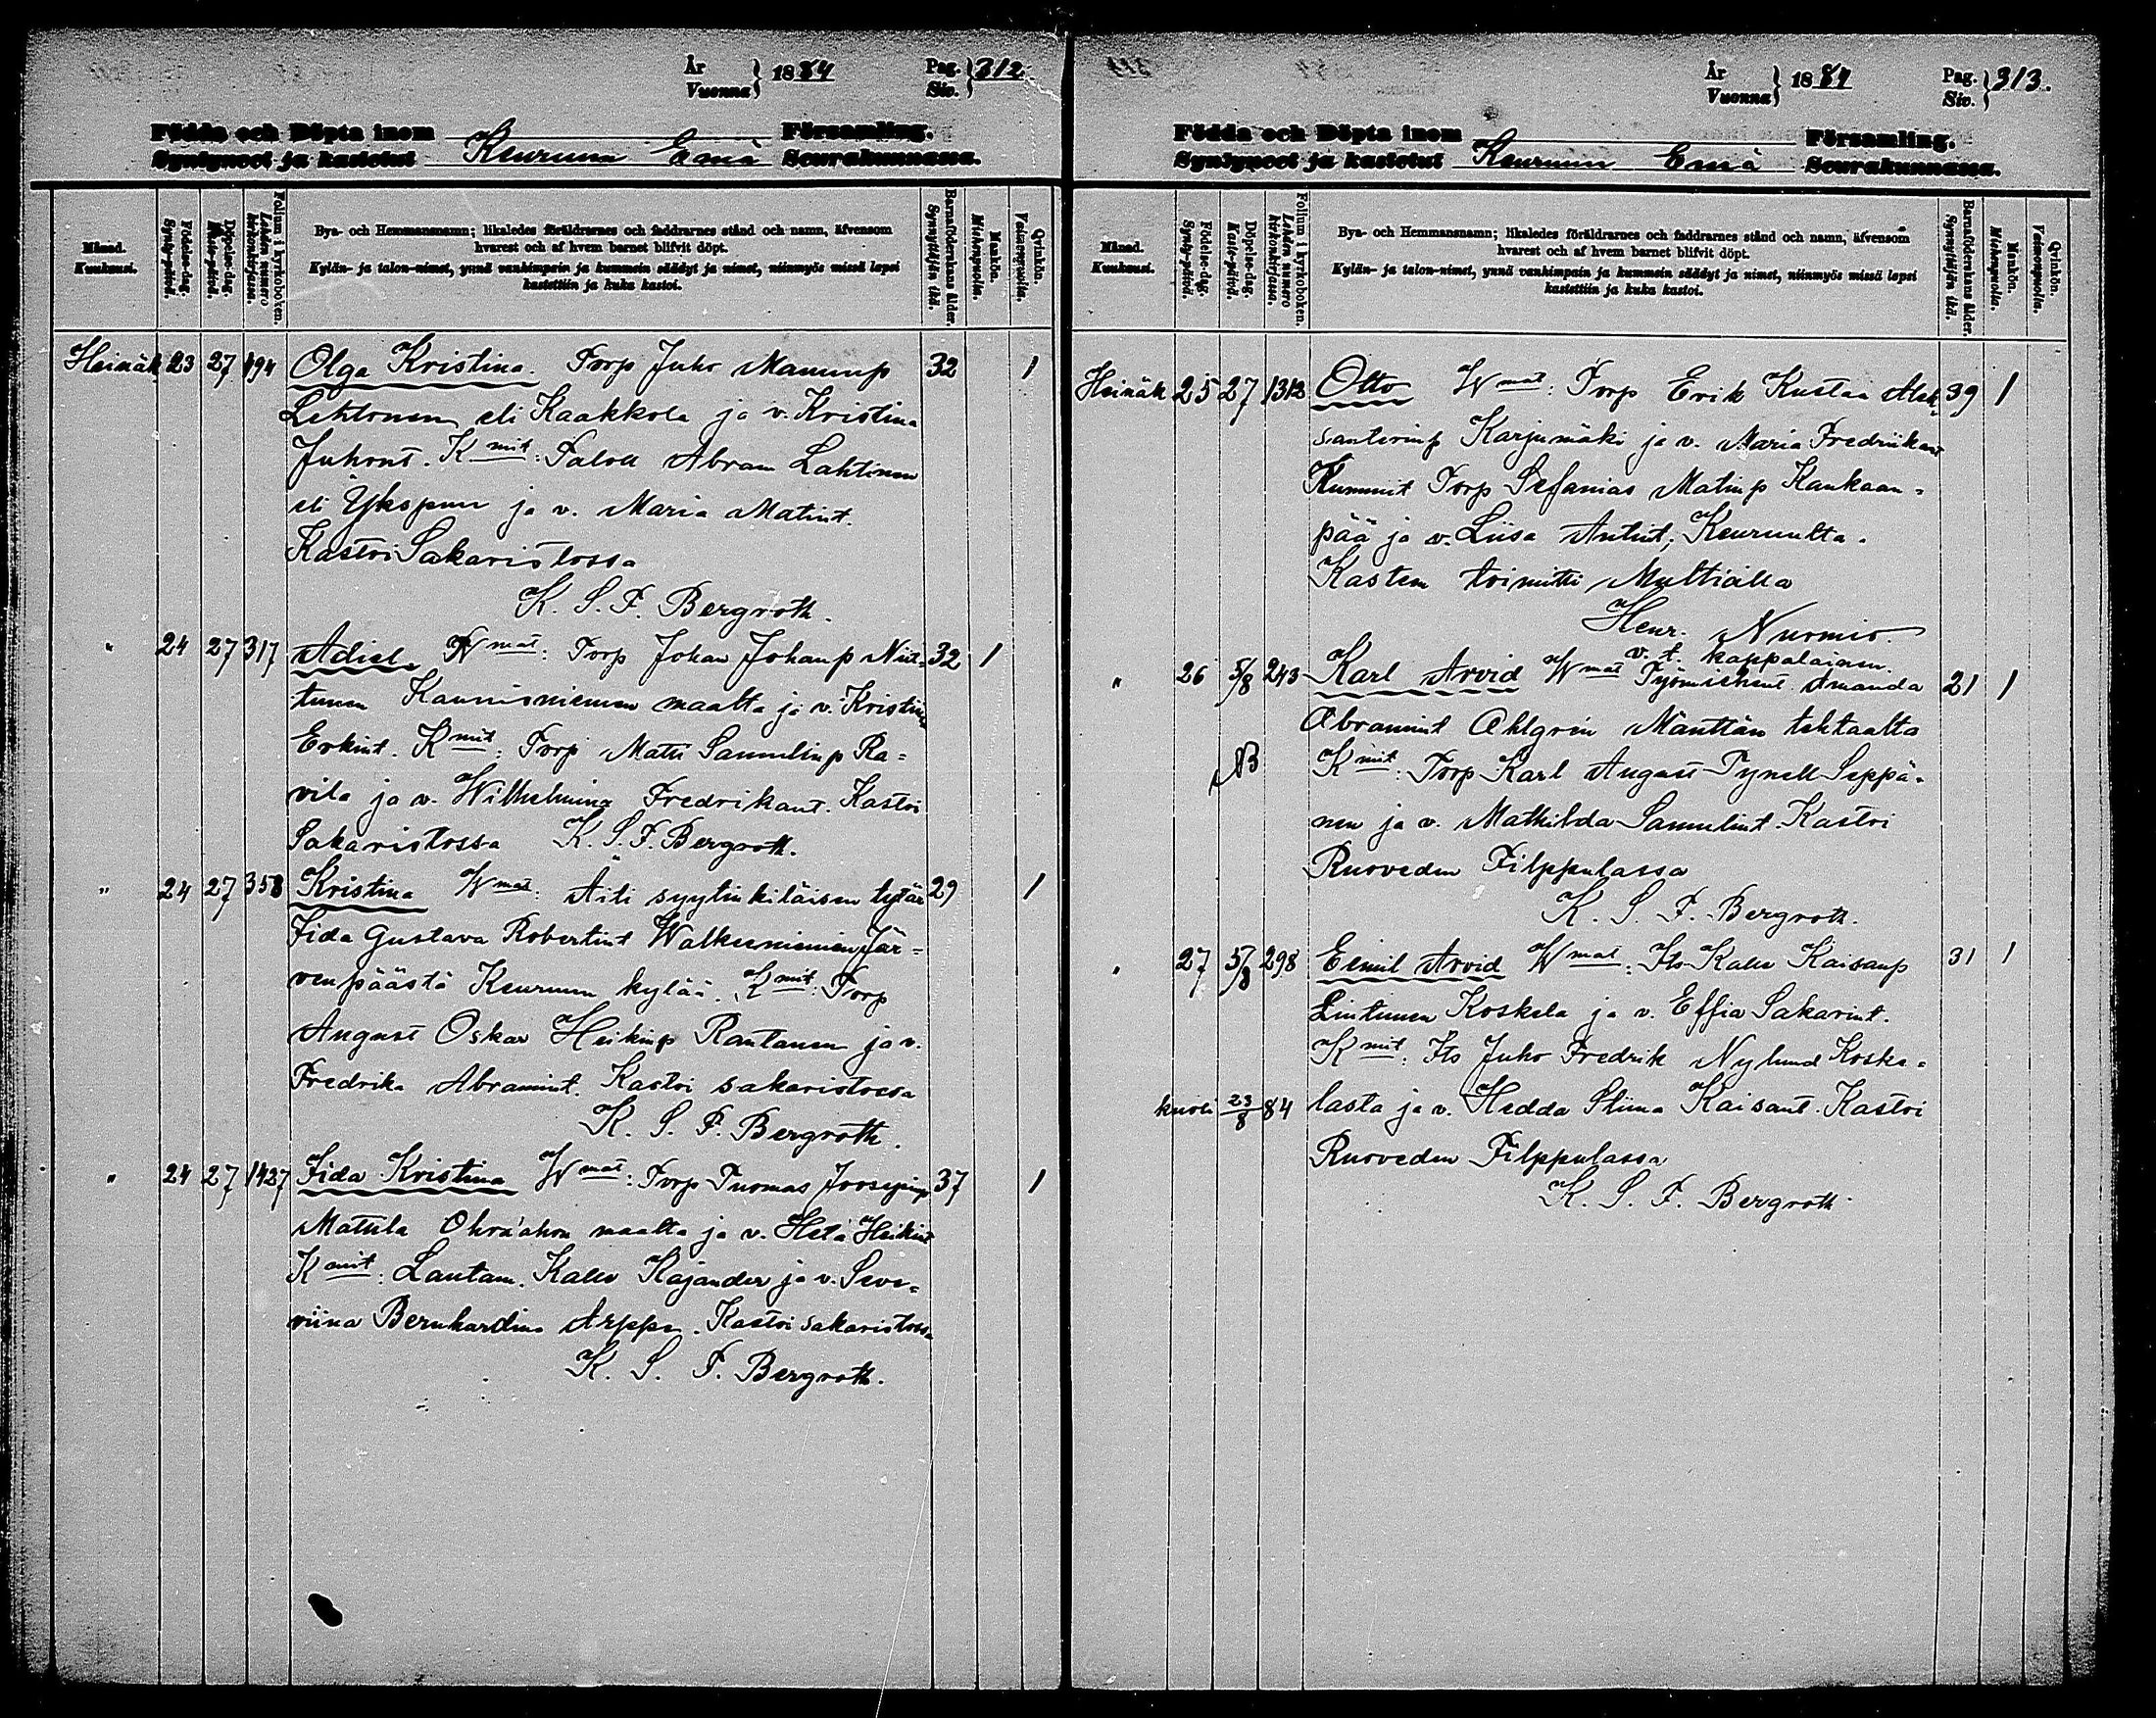 År
Vuonna } 1884 Pag.
Siv. } 312
Födda och Döpta inom
Syntyneet ja kastetut Keuruun Emä Församling.
Seurakunnassa.
Månad.
Kuukausi.
Födelse-dag.
Syntymä-päivä.
Döpelse-dag.
Kaste-päivä.
Folium i kyrkoboken.
Lehden numero kirkonkirjassa.
Bya- och Hemmansnamn; likaledes föräldrarnes och faddrarnes stånd och namn, äfvensom
hvarest och af hvem barnet blifvit döpt.
Kylän- ja talon-nimet, ynnä vanhimpain ja kummein säädyt ja nimet, niinmyös missä lapsi
kastettiin ja kuka kastoi.
Barnaföderskans ålder.
Synnyttäjän ikä.
Mankön.
Miehenpuolia.
Qvinkön.
Vaimonpuolia.
Heinäk 23 27 194 Olga Kristina. Torp Juho Manunp 32 1
Lehtonen eli Kaakkola ja v. Kristina
Juhont. Kmit: Taloll Abram Lahtinen
eli Ykspuu ja v. Maria Matint.
Kastoi Sakaristossa
K. S. F. Bergroth.
" 24 27 317 Adiel Wmat: Torp Johan Johanp Niit- 32 1
tunen Kaunisniemen maalta ja v. Kristina
Erkint. Kmit: Torp Matti Samulinp Ra=
vila ja v. Wilhelmina Fredrikant. Kastoi
Sakaristossa K. S. F. Bergroth.
" 24 27 358 Kristina Wmat: Äiti syytinkiläisen tytär 29 1
Fida Gustava Robertint Walkeeniemien Jär=
venpäästä Keuruun kylää. Kmit: Torp
August Oskar Heikinp Rantanen ja v.
Fredrika Abramint. Kastoi sakaristossa
K. S. F. Bergroth.
" 24 27 1427 Fida Kristina Wmat: Torp Tuomas Joosepinp 37 1
Mattila Ohra'ahon maalta ja v. Heta Heikint
Kmit: Lautam. Kalle Kajander ja v. Seve=
riina Bernhardina Arppe. Kastoi sakaristossa
K. S. F. Bergroth.
År
Vuonna } 1884 Pag.
Siv. } 313.
Födda och Döpta inom
Syntyneet ja kastetut Keuruun Emä Församling.
Seurakunnassa.
Månad.
Kuukausi.
Födelse-dag.
Syntymä-päivä.
Döpelse-dag.
Kaste-päivä.
Folium i kyrkoboken.
Lehden numero kirkonkirjassa.
Bya- och Hemmansnamn; likaledes föräldrarnes och faddrarnes stånd och namn, äfvensom
hvarest och af hvem barnet blifvit döpt.
Kylän- ja talon-nimet, ynnä vanhimpain ja kummein säädyt ja nimet, niinmyös missä lapsi
kastettiin ja kuka kastoi.
Barnaföderskans ålder.
Synnyttäjän ikä.
Mankön.
Miehenpuolia.
Qvinkön.
Vaimonpuolia.
Heinäk 25 27 1313 Otto Wmat: Torp Erik Kustaa Alek- 39 1
santerinp Karjumäki ja v. Maria Fredriikant
Kummit Torp Sefanias Matinp Kankaan=
pää ja v. Liisa Antint; Keuruulta.
Kasteen toimitti Multialla
Henr. Nurmio
v. t. kappalainen.
" 26 5/8 243 Karl Arvid Wmat Työmiehent. Amanda 21 1
Abramint Ahlgrén Mänttän tehtaalta
NB Kmit: Torp Karl August Tynell Seppä=
nen ja v. Mathilda Samulint. Kastoi
Ruoveden Filppulassa
K. S. F. Bergroth.
" 27 5/8 298 Eemil Arvid Wmat: Its Kalle Kaisanp 31 1
Lintunen Koskela ja v. Effia Sakarint.
Kmit: Its Juho Fredrik Nylund Koske=
kuoli 23/8 84 lasta ja v. Hedda Stiina Kaisant. Kastoi
Ruoveden Filppulassa
K. S. F. Bergroth